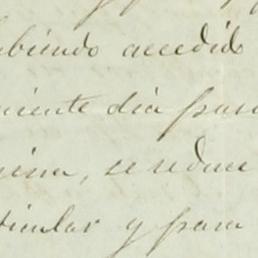 abiendo accedido
niente dia para
gina, se reduce
ticular y para